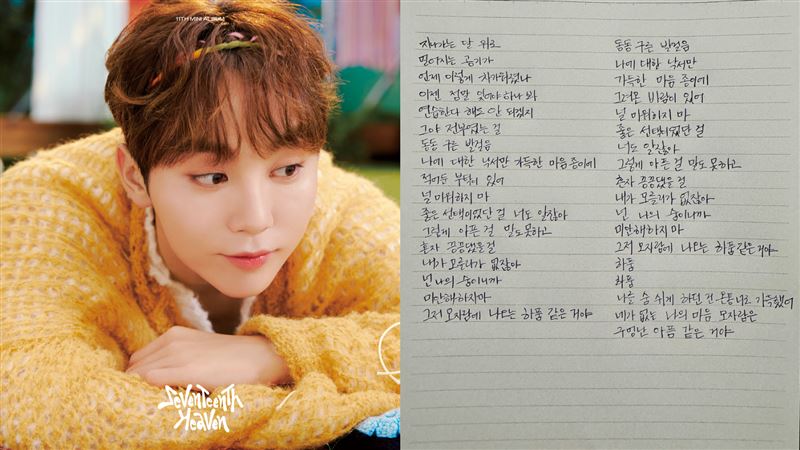 11TH MINI ALBUM
SEVENTEENTH
HEAVEN
지나가는 달 위로
멀어지는 공기가
언제 이렇게 차가워졌나
이젠 정말 잊어야 하나 봐
연습한다 해도 안 되겠지
그야 전부였는 걸
동동 구른 발걸음
나에 대한 낙서만 가득한 마음 종이에
적어둔 부탁이 있어
널 미워하지 마
좋은 선택이었단 걸 너도 알잖아
그렇게 아픈 걸 말도 못하고
혼자 끙끙댔을 걸
내가 모를리가 없잖아
넌 나의 숨이니까
미안해하지마
그저 모자람에 나오는 하품 같은 거야
동동 구른 발걸음
나에 대한 낙서만
가득한 마음 종이에
그려온 바람이 있어
널 미워하지 마
좋은 선택이었단 걸
너도 알잖아
그렇게 아픈 걸 말도 못하고
혼자 끙끙댔을 걸
내가 모를리가 없잖아
넌 나의 숨이니까
미안해하지마
그저 모자람에 나오는 하품같은 거야
하품
하품
나를 숨 쉬게 하던 건 온통 너로 가득했어
네가 없는 나의 마음 모자람은
구멍난 아픔 같은 거야